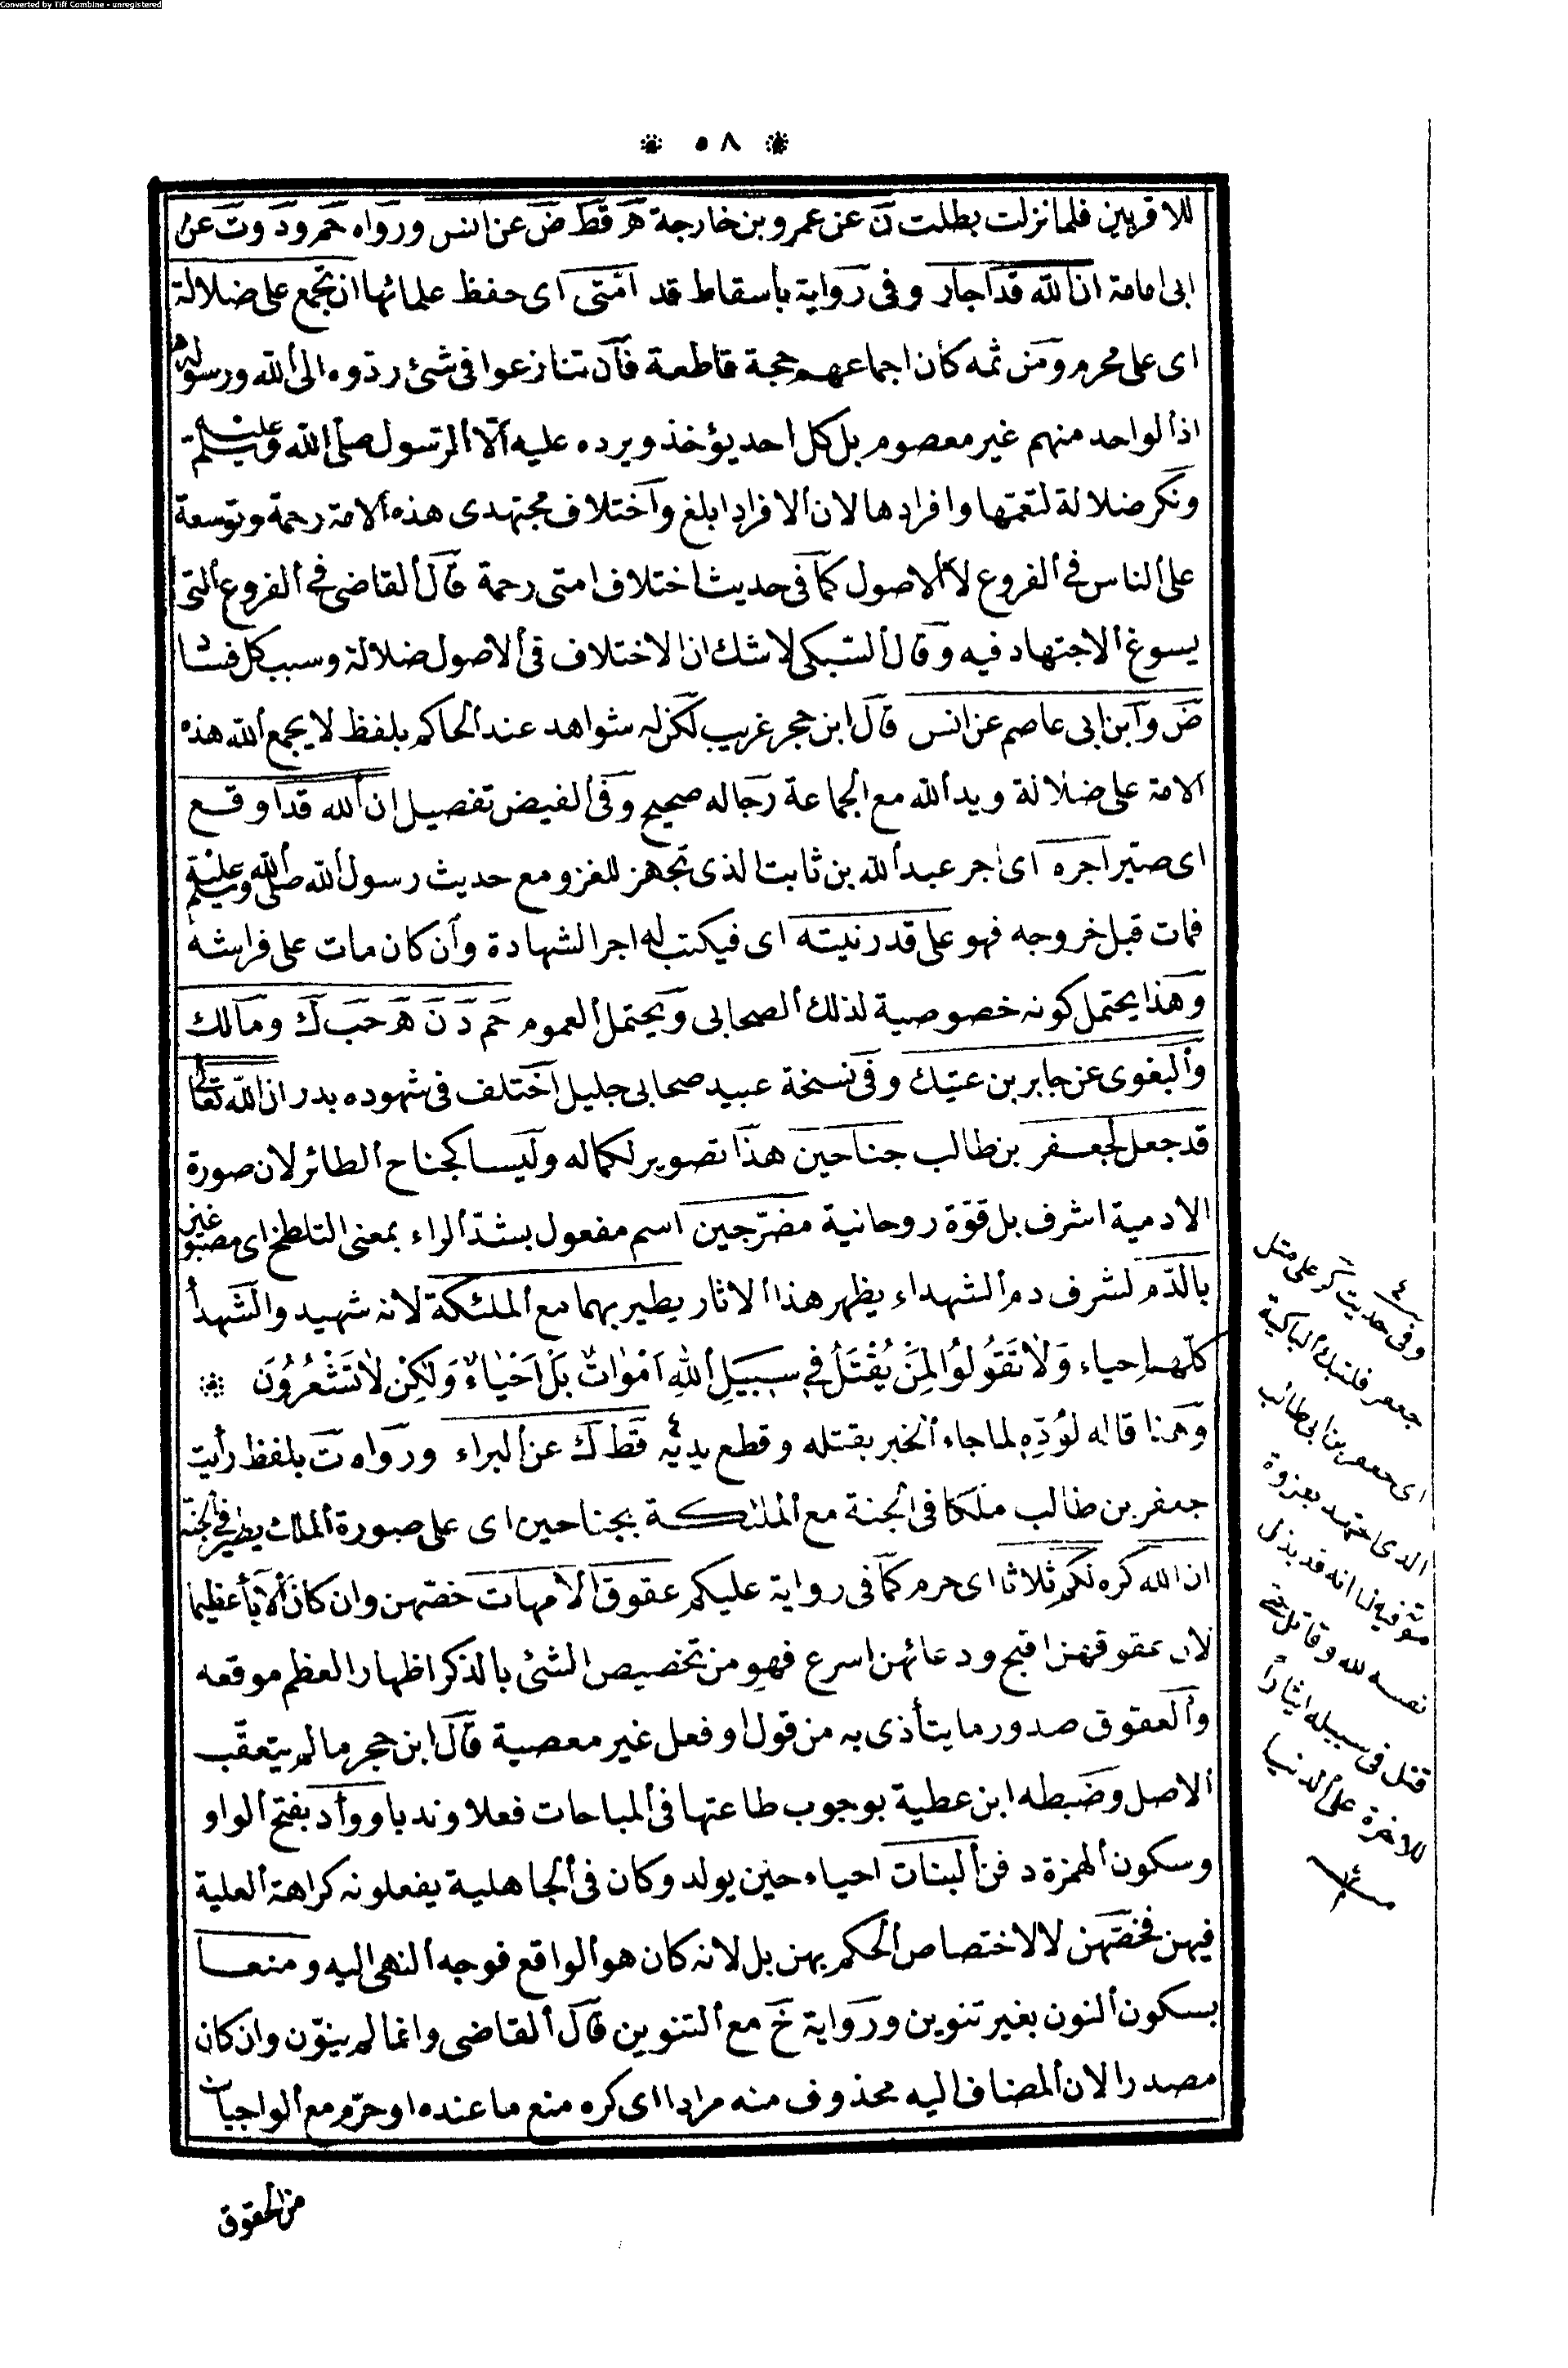 Converted by Tiff Combine - unregistered
٥٨
للاقربين فلما نزلت بطلت ن عن عمرو بن خارجة هر قط ض عن انس ورواه حم ود وت عن
ابى امامة ان الله قد اجار وفى رواية باسقاط قد امتى اى حفظ علمائها ان تجمع على ضلالة
اى على محرم ومن ثمه كان اجماعهم حجة قاطعة فان تنازعوا فى شئ ردوه الى الله ورسوله
اذ الواحد منهم غير معصوم بل كل احد يؤخذ ويرده عليه الا الرسول صلى الله عليه وسلم
ونكر ضلالة لتعمها وافردها لان الافراد ابلغ واختلاف مجتهدى هذه الامة رحمة وتوسعة
على الناس فى الفروع لا الاصول كما فى حديث اختلاف امتى رحمة قال القاضى فى الفروع التى
يسوغ الاجتهاد فيه وقال السبكى لا شك ان الاختلاف فى الاصول ضلالة وسبب كل فساد
ض وابن ابى عاصم عن انس قال ابن حجر غريب لكن له شواهد عند الحاكم بلفظ لا يجمع الله هذه
الامة على ضلالة ويد الله مع الجماعة رجاله صحيح وفى الفيض تفصيل ان الله قد اوقع
اى صير اجره اى اجر عبد الله بن ثابت الذى تجهز للغزو مع حديث رسول الله صلى الله عليه وسلم
فمات قبل خروجه فهو على قدر نيته اى فيكتب له اجر الشهادة وان كان مات على فراشه
وهذا يحتمل كونه خصوصية لذلك الصحابى ويحتمل العموم حم د ن هر حب ك ومالك
والبغوى عن جابر بن عتيك وفى نسخة عبيد صحابى جليل اختلف فى شهوده بدر ان الله تعالى
قد جعل لجعفر بن طالب جناحين هذا تصوير لكماله وليسا كجناح الطائر لان صورة
الادمية اشرف بل قوة روحانية مضرجين اسم مفعول بشد الراء بمعنى التلطخ اى مصبوغين
بالدم لشرف دم الشهداء يظهر هذا الاثار يطير بهما مع الملئكة لانه شهيد والشهدأ
كلهم احياء وَلَا تَقُولُوا لِمَنْ يُقْتَلُ فِى سَبِيلِ اللهِ اَمْوَاتٌ بَلْ اَحْيَاءٌ وَلٰكِنْ لَا تَشْعُرُونَ
وهذا قاله لولده لما جاء الخبر بقتله وقطع يديه ٤ قط ك عن البراء ورواه ت بلفظ رأيت
جعفر بن طالب ملكا فى الجنة مع الملئكة بجناحين اى على صورة الملك يطير فى الجنة
ان الله كره لكم ثلاثا اى حرم كما فى رواية عليكم عقوق الامهات خصهن وان كان الاٰبأ عظيما
لان عقوقهن اقبح ودعائهن اسرع فهو من تخصيص الشئ بالذكر اظهارا لعظم موقعه
والعقوق صدور ما يتأذى به من قول او فعل غير معصية قال ابن حجر ما لم يتعقب
الاصل وضبطه ابن عطية بوجوب طاعتها فى المباحات فعلا وندبا ووأد بفتح الواو
وسكون الهمزة دفن البنات احياء حين يولد وكان فى الجاهلية يفعلونه كراهة العلية
فيهن فخصهن لا لاختصاص الحكم بهن بل لانه كان هو الواقع فوجه النهى اليه ومنعا
بسكون النون بغير تنوين ورواية خ مع التنوين قال القاضى وانما لم ينون وان كان
مصدرا لان المضاف اليه محذوف منه مرادا اى كره منع ما عنده او حرم مع الواجبات
من الحقوق
٤
وفى حديث كر على مثل
جعفر فلتبك الباكية
اى جعفر بن ابى طالب
الذى استشهد بغزوة
نفسه لله وقاتل حتى
قتل فى سبيله ايثارا
للاخرة على الدنيا